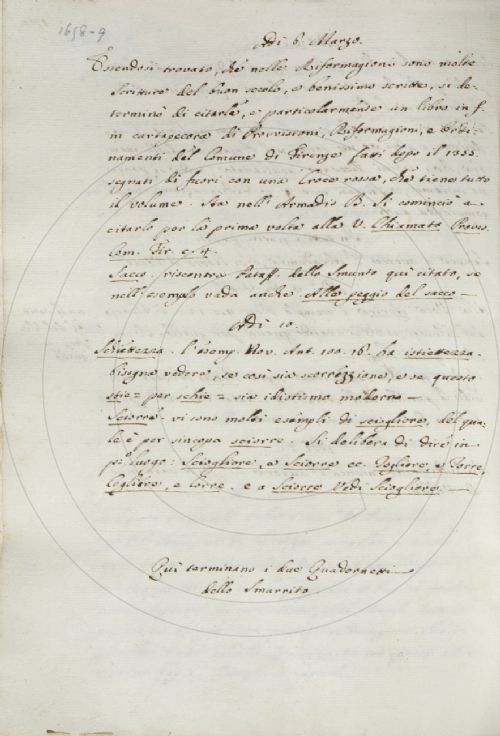 1658-9
Adi 6. Marzo.
Essendosi trovato, che nelle Riformagioni sono molte
scritture del buon secolo, e benissimo scritte, si de-
terminò di citarle, e particolarmente un libro in f.
in cartapecora di Provvisioni, Riformagioni, e Ordi-
namenti del Comune di Firenze fatti dopo il 1355.
segnati di fuori con una Croce rossa, che tiene tutto
il volume. Sta nell'Armadio B. Si cominciò a
citarlo per la prima volta alla V. Chiamata Provv.
Com. Fir. c. 4.
Sacco. riscontra Pataff. dello Smunto qui citato, se
nell'esempio vada anche Alla peggio del sacco —
Adi 10.
Schiettezza. l'esemp. Nov. Ant. 100. 16. ha istiettezza.
bisogna vedere, se così sia scorrezzione, o se questo
stie = per schie = sia idiotismo moderno —
Sciorre. vi sono molti esempli di sciogliere, del qua-
le è per sincopa sciorre. Si delibera di dire in
po luogo: Sciogliere, e Sciorre ec. Togliere, e Torre,
Cogliere, e Corre. e a Sciorre Vedi Sciogliere. —
Qui terminano i due Quadernetti
dello Smarrito